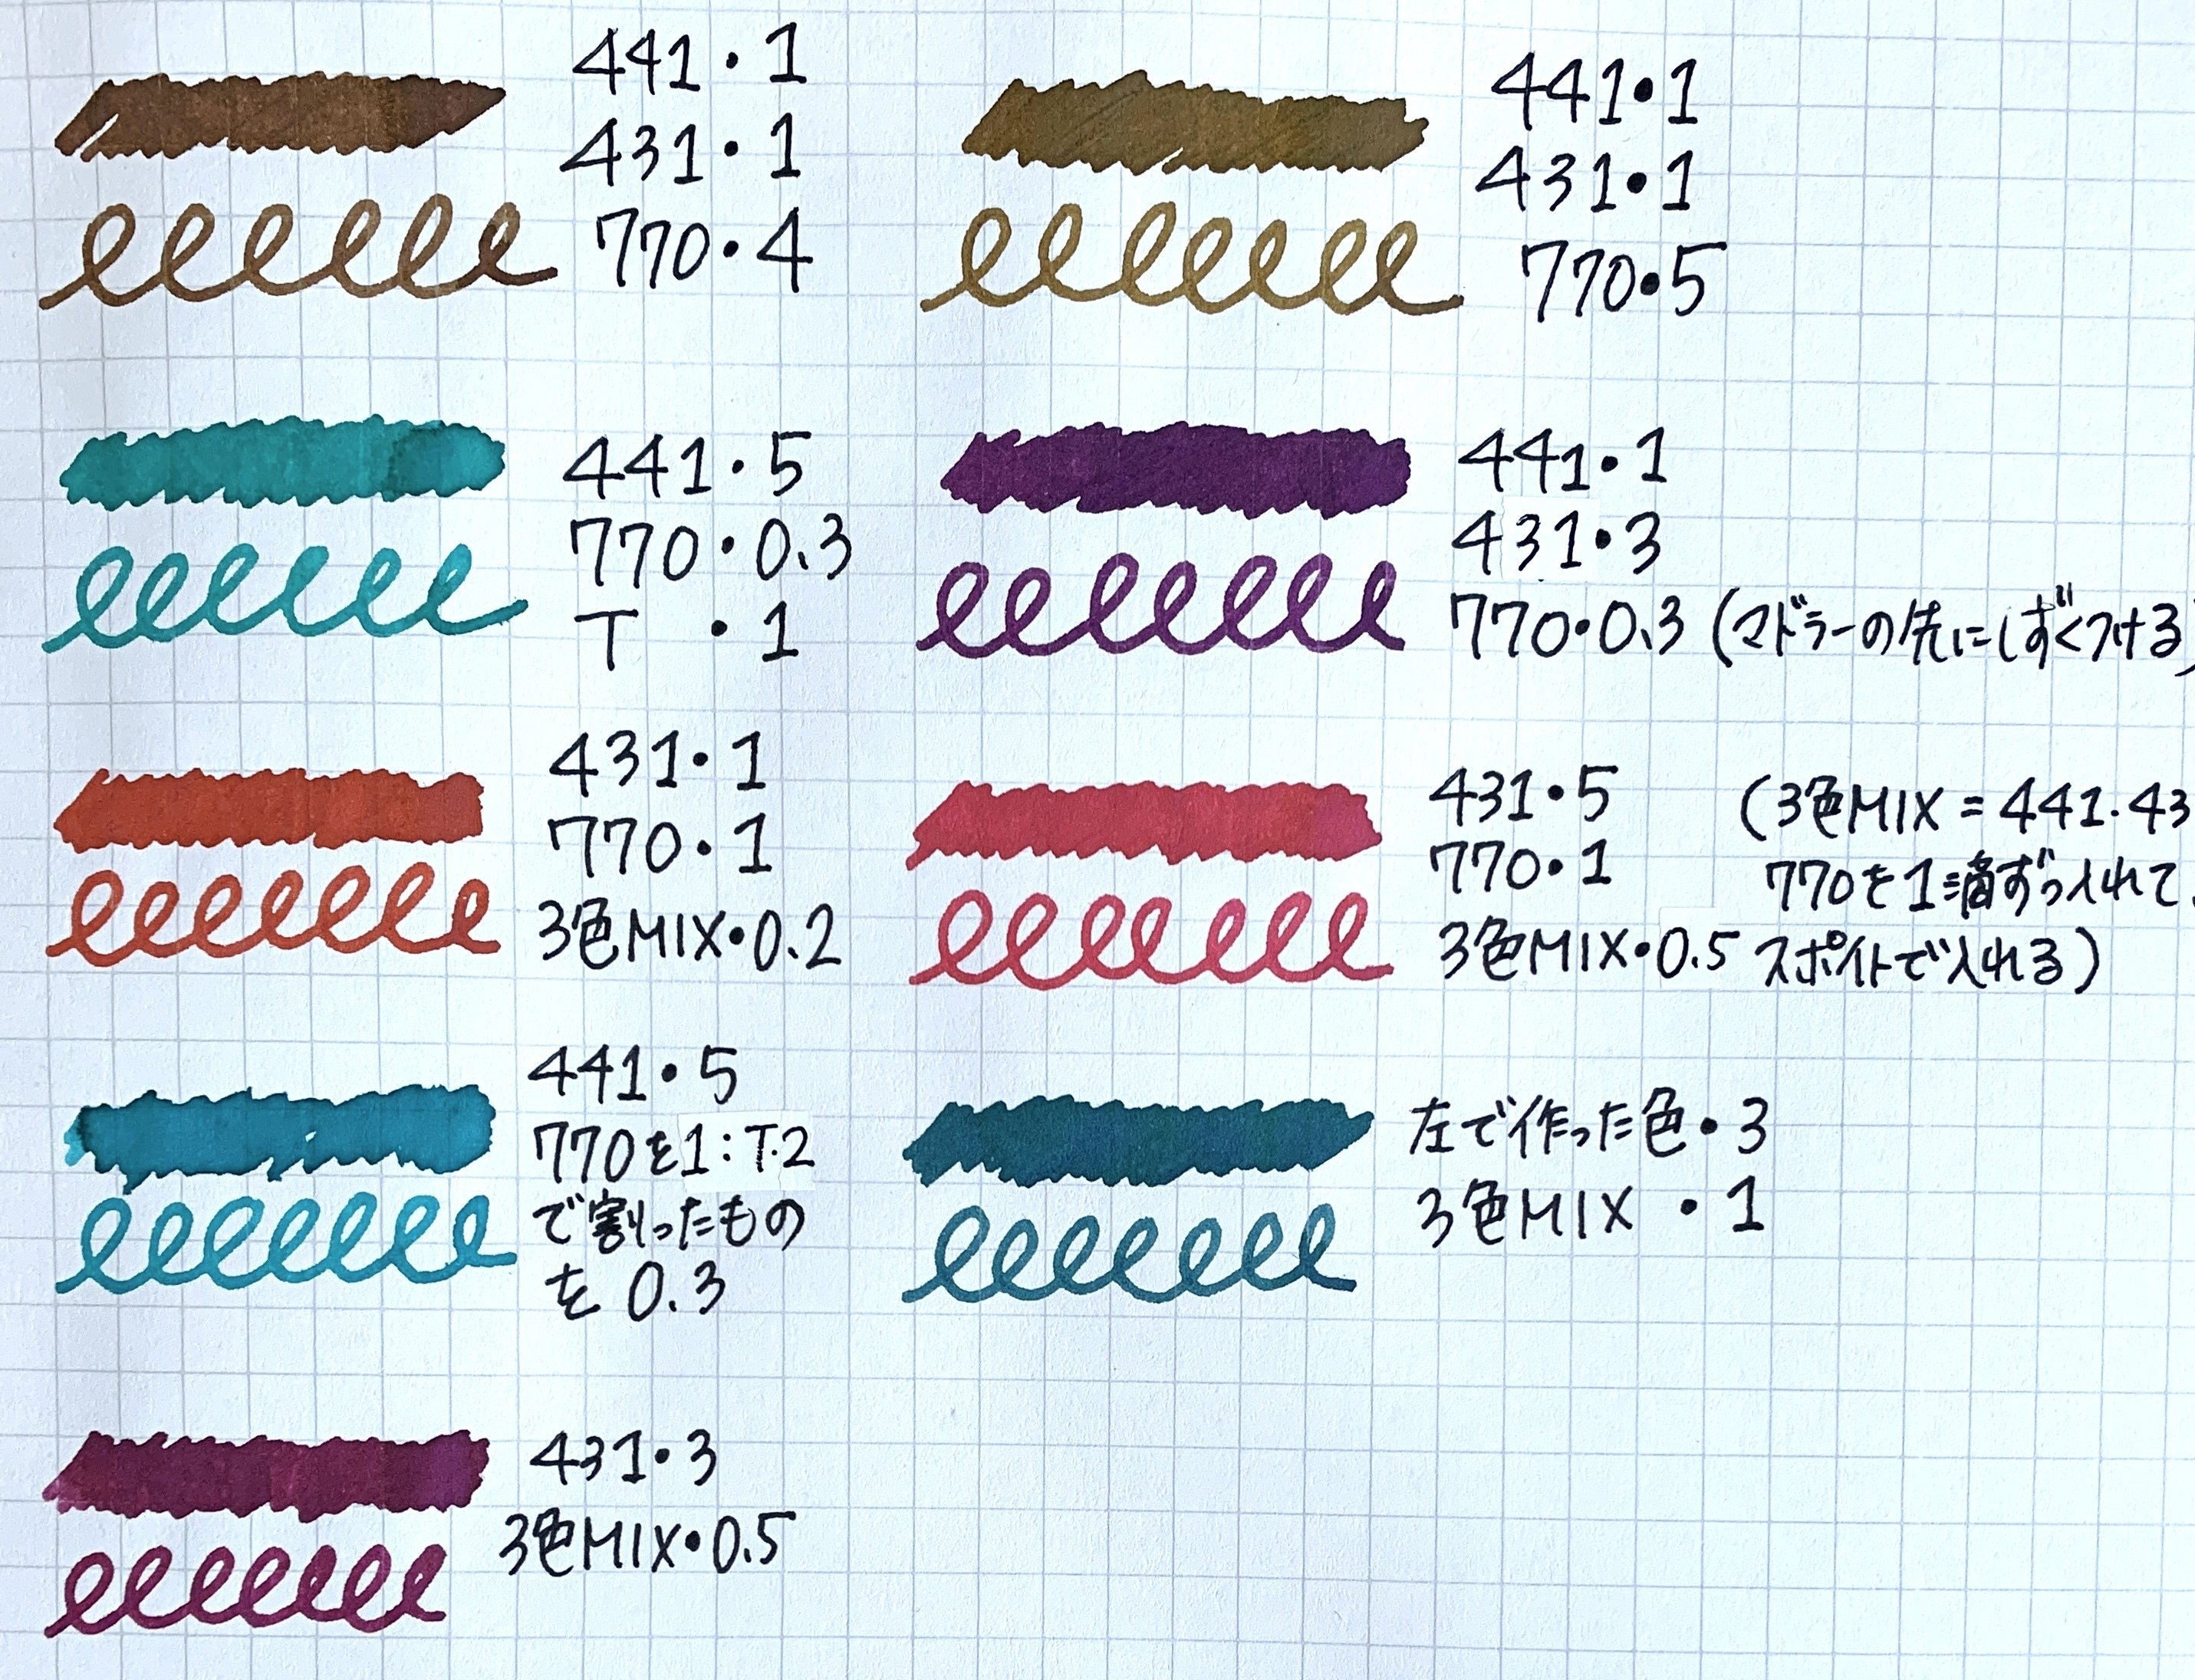 441・1
431・1
770・4
441・1
431・1
770・5
441・5
770・0.3
T ・1
441・1
431・3
770・0.3 (マドラーの先にしずくつける)
431・1
770・1
3色MIX・0.2
431・5
770・1
3色MIX・0.5
(3色MIX = 441.43
770を1滴ずつ入れて、
スポイトで入れる)
441・5
770を1:T.2
で割ったもの
を 0.3
左で作った色・3
3色MIX ・1
431・3
3色MIX・0.5